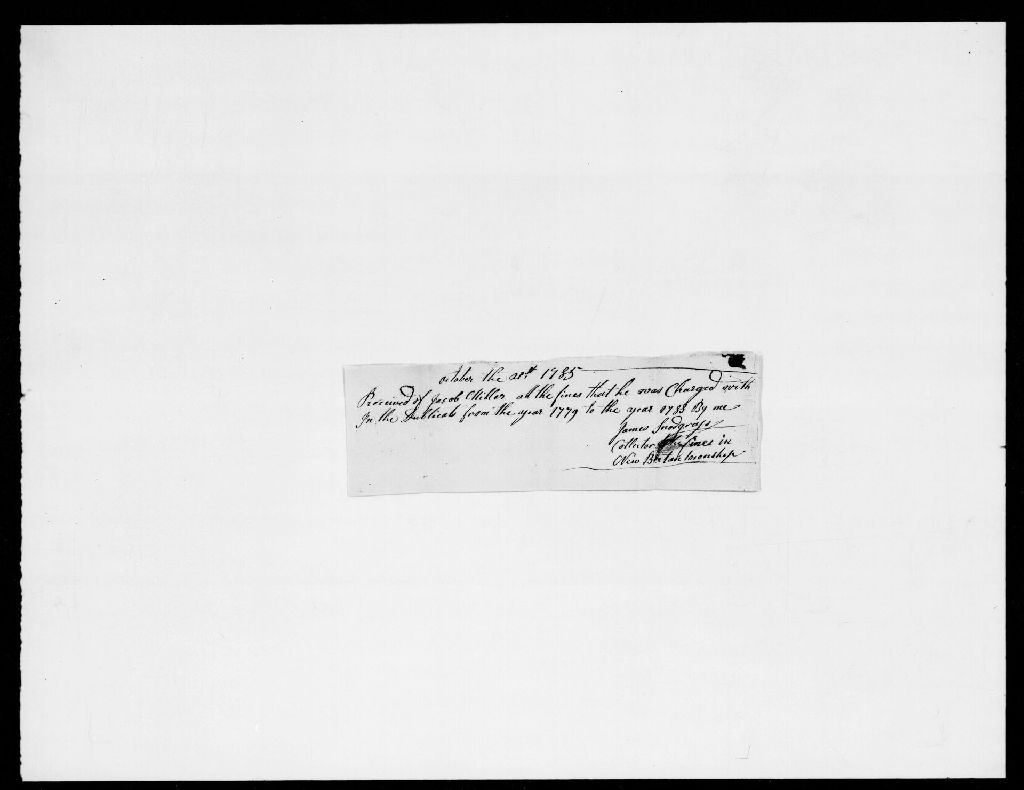 october the 21st 1785
Received of Jacob Miller all the fines that he was Charged with
In the Dublicats from the year 1779 to the year 1783 By me
James Snodgrass
Collector the fines in
New Britain townshep